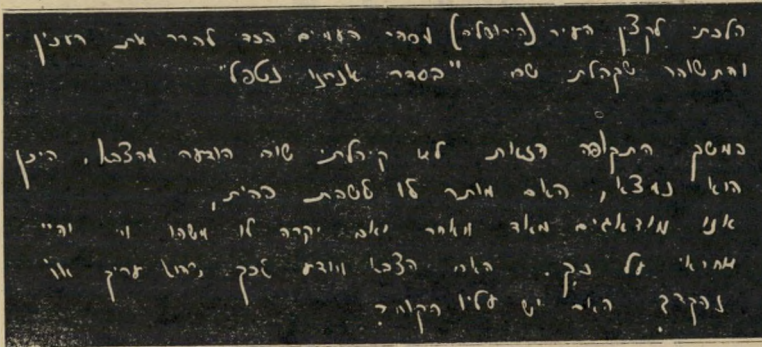 הלכתי לקצין העיר (הירושלמי) מספר פעמים בכדי לברר את הענין
והתשובה שקבלתי שם "בסדר אנחנו נטפל"
במשך התקופה הזאת לא קיבלתי שום הודעה מהצבא, היכן
הוא נמצא, האם מותר לו לשבת בבית,
אני מודאגים מאד מאחר ואם יקרה לו משהו מי יהיה
אחראי על כך. האם הצבא יודע מכך שהוא עריק או
נפקד? האם יש עליו פקודה?